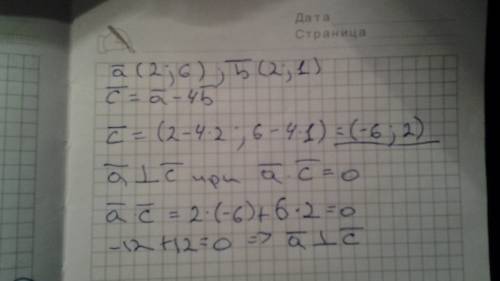 Дата
Страница
a̅ (2; 6); b̅ (2; 1)
c̅ = a̅ - 4b̅
c̅ = (2-4·2; 6-4·1) = (-6; 2)
a̅ ⊥ c̅ при a̅·c̅ = 0
a̅ c̅ = 2·(-6)+6·2=0
-12+12=0 => a̅ ⊥ c̅